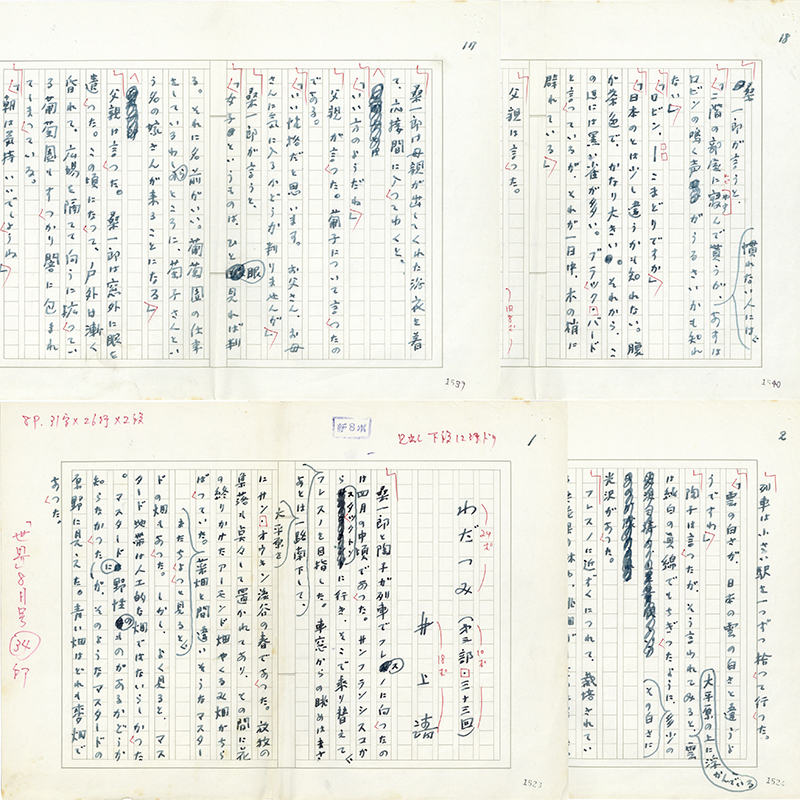 17
桑一郎は母親が出してくれた浴衣を着
て、応接間に入ってゆくと、
「いい方のようだね」
父親が言った。葡子について言ったの
である。
「いい性格だと思います。お父さん、お母
さんに気に入るかどうか判りませんが」
桑一郎が言うと、
「女子というものは、ひと眼見れば判
る。それに名前がいい。葡萄園の仕事
をしているわしのところに、萄子さんとい
う名の娘さんが来ることになる」
父親は言った。桑一郎は窓外に眼を
遣った。この頃になって、戸外は漸く
昏れて、広場を隔てて向うに拡ってい
る葡萄園もすっかり闇に包まれ
てしまっている。
「朝は気持いいでしょうね」
1539
18
桑一郎が言うと、
慣れない人には、
「二階の部屋に寝んで貰うが、あすは
ロビンの鳴く声がうるさいかも知れ
ない」
「ロビン、――こまどりですか」
「日本のとは少し違うかも知れない。腹
が茶色で、かなり大きい。それから、こ
の辺には黒い雀が多い。ブラックバード
と言っているが、それが一日中、木の梢に
群れている」
父親は言った。
1540
8P. 31字×26行×2段
見出し下段12行ドリ
1
わだつみ(第三部 三十三回)
井上靖
桑一郎と陶子が列車でフレスノに向ったの
は四月の中頃であった。サンフランシスコか
らスタックトンに行き、そこで乗り替えて、
あとは一路南下して、
フレスノを目指した。車窓からの眺めはまさ
大平原を
にサンオウキン渓谷の春であった。放牧の
集落も点々して置かれてあり、その間に花
の終りかけたアーモンド畑やくるみ畑がちら
ばっていた。菜畑と間違いそうなマスター
またちょっと見ると、
ドの畑もあった。しかし、よく見ると、マス
タード地帯は人工的な畑ではないらしかった
。マスタードに野性のものがあるかどうか
知らなかったが、そのようなマスタードの
原野に見えた。青い畑はどれも麦畑で
あった。
「世界」8月号 34 印
1523
2
列車は小さい駅を一つずつ拾って行った。
「雲の白さが、日本の雲の白さと違うよ
うですわ」
陶子は言ったが、そう言われてみると、雲
大平原の上に浮かんでいる
は純白の真綿でもちぎったように、多少の
その白さに
光沢があった。
フレスノに近ずくにつれて、栽培されてい